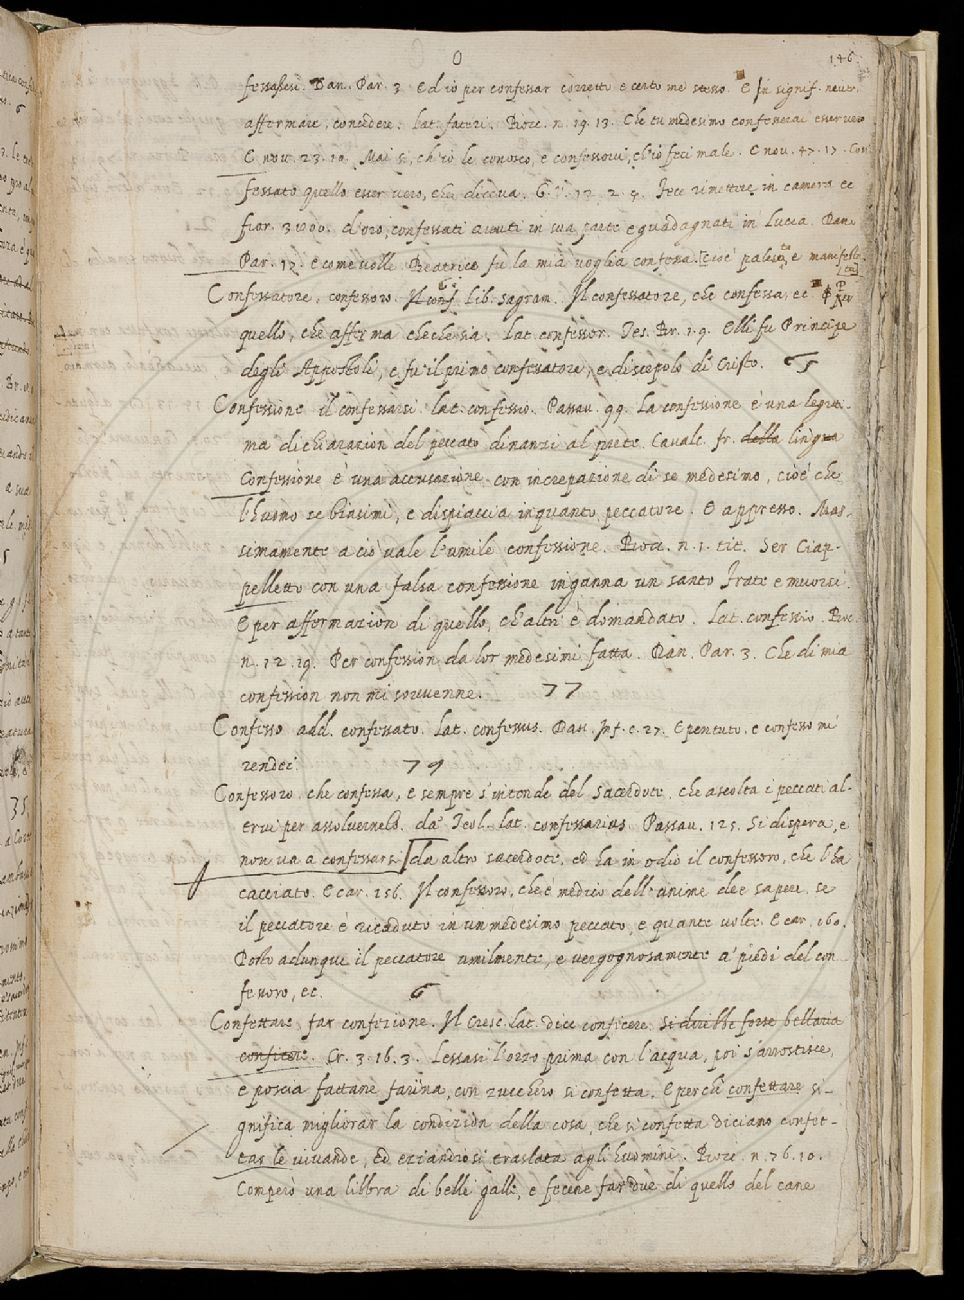 O
146
fessassesi. Dan. Par. 3. Ed io per confessar corretto e certo me stesso. E in signif. neutr.
affermare, concedere. lat. fateri. Bocc. n. 19. 13. Che tu medesimo confesserai esser vero
E nov. 23. 10. Mai sì, ch'io le conosco, e confessovi, ch'io feci male. E nov. 47. 17. Con
fessatò quello esser vero, che diceva. G. V. 12. 2. 4. Fece rimettere in camera ec
fior. 3000. d'oro, confessati avuti in sua parte e guadagnati in Lucca. Dan.
Par. 17. e come volle Beatrice fu la mia voglia confessa. cioè palesata e manifesta
Confessatore, confessoro. Il conf. lib. sagram. Il confessatore, che confessa, ec per
quello, che afferma checchesia. lat. confessor. Tes. Br. 1. 9. Elli fu Principe
degli Appostoli, e fu il primo confessatore, e discepolo di Cristo. 65
Confessione il confessarsi. lat. confessio. Passav. 99. La confessione è una legitti-
ma dichiarazion del peccato dinanzi al prete. Cavalc. fr. della lingua
Confessione è una accusazione con increpazione di se medesimo, cioè che
l'huomo se biasimi, e dispiaccia inquanto peccatore. E appresso. Mas-
simamente a ciò vale l'umile confessione. Bocc. n. 1. tit. Ser Ciap-
pelletto con una falsa confessione inganna un santo frate e muorsi.
E per affermazion di quello, ch'altri è domandato. Lat. confessio. Boc.
n. 12. 19. Per confession da lor medesimi fatta. Dan. Par. 3. Che di mia
confession non mi sovvenne. 77
Confesso add. confessato. lat. confessus. Dan. Inf. c. 27. E pentuto, e confesso mi
rendei. 79
Confessoro. che confessa, e sempre s'intende del Sacerdote, che ascolta i peccati al-
trui per assolvernelo. da' Teol. lat. confessarius. Passav. 125. Si dispera, e
non va a confessarsi da altro sacerdote, ed ha in odio il confessoro, che l'ha
cacciato. E car. 156. Il confessoro, che è medico dell'anime dee sapere, se
il peccatore è ricaduto in un medesimo peccato, e quante volte. E car. 160.
Posto adunque il peccatore umilmente, e vergognosamente a' piedi del con
fessoro, ec. 6
Confettare, far confezione. Il Cresc. lat. dice conficere. Si direbbe forse bellaria
conficere. Cr. 3. 16. 3. Lessasi l'orzo prima con l'acqua, poi s'arrostisce,
e poscia fattane farina, con zucchero si confetta. E perchè confettare si-
gnifica migliorar la condizion della cosa, che si confetta diciamo confet-
tar le vivande, ed eziandio si traslata agli huomini. Bocc. n. 76. 10.
Comperò una libbra di belle galle, e fecene far due di quello del cane